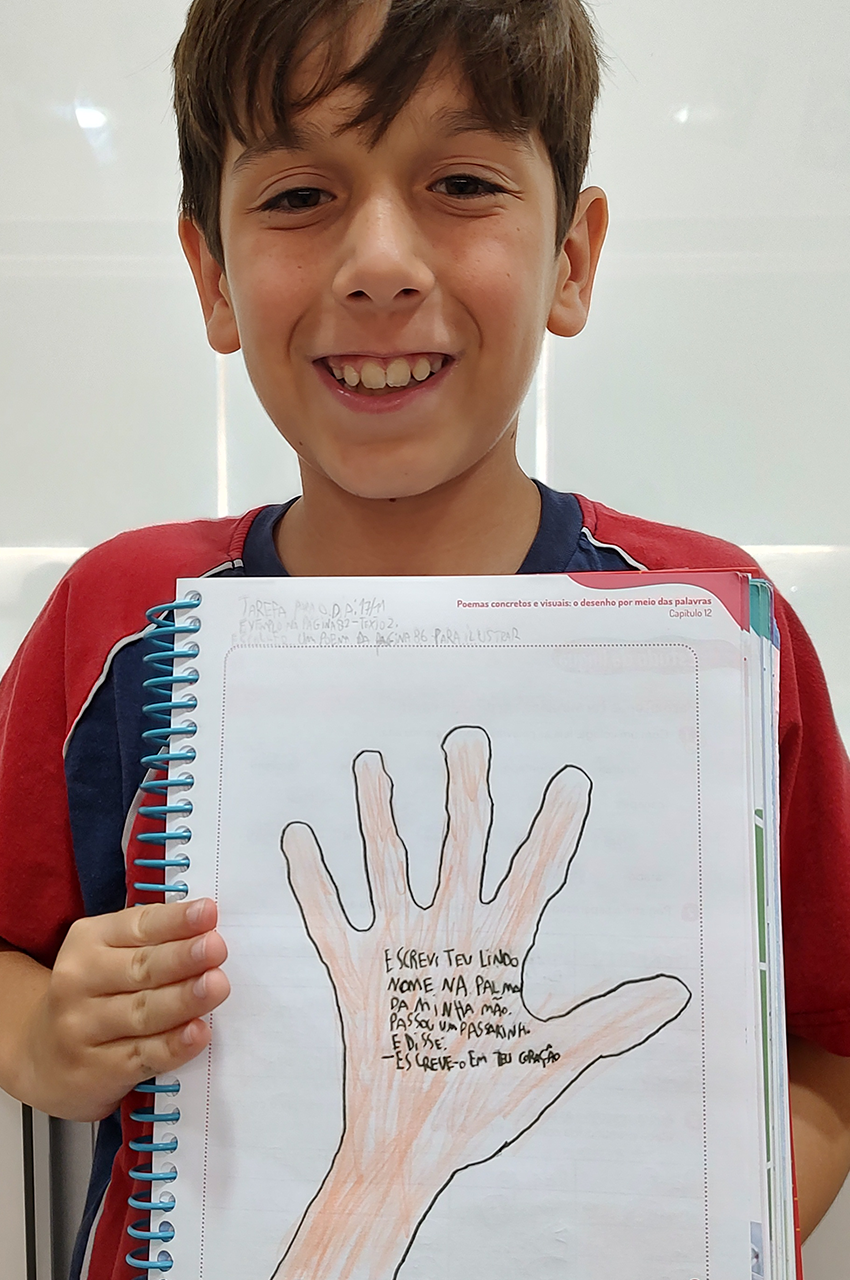 Poemas concretos e visuais: o desenho por meio das palavras
Capítulo 12
TAREFA PARA O DIA 17/11
EXEMPLO NA PÁGINA 87 - TEXTO 2.
UM POEMA DA PÁGINA 86 PARA ILUSTRAR
ESCREVI TEU LINDO
NOME NA PALMA
DA MINHA MÃO.
PASSOU UM PASSARINHO
E DISSE:
-ESCREVE-O EM TEU CORAÇÃO